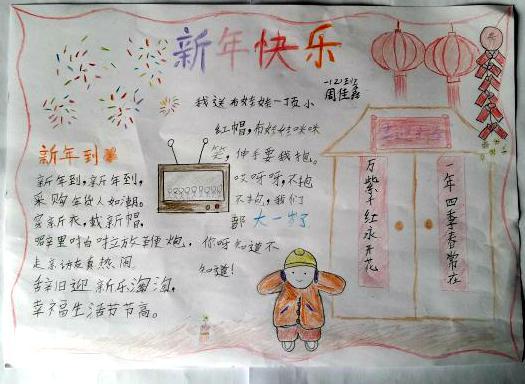 新年快乐
一(2)班
周佳鑫
我送布娃娃一顶小
红帽,布娃娃咪咪
笑,伸手要我抱。
哎呀呀,不抱
不抱,我们
都大一岁了
你呀知道不
知道!
新年到
新年到,新年到,
采购年货人如潮。
穿新衣,戴新帽,
噼里啪啦放鞭炮,
走亲访友真热闹
辞旧迎新乐淘淘,
幸福生活节节高。
万紫千红永开花
一年四季春常在